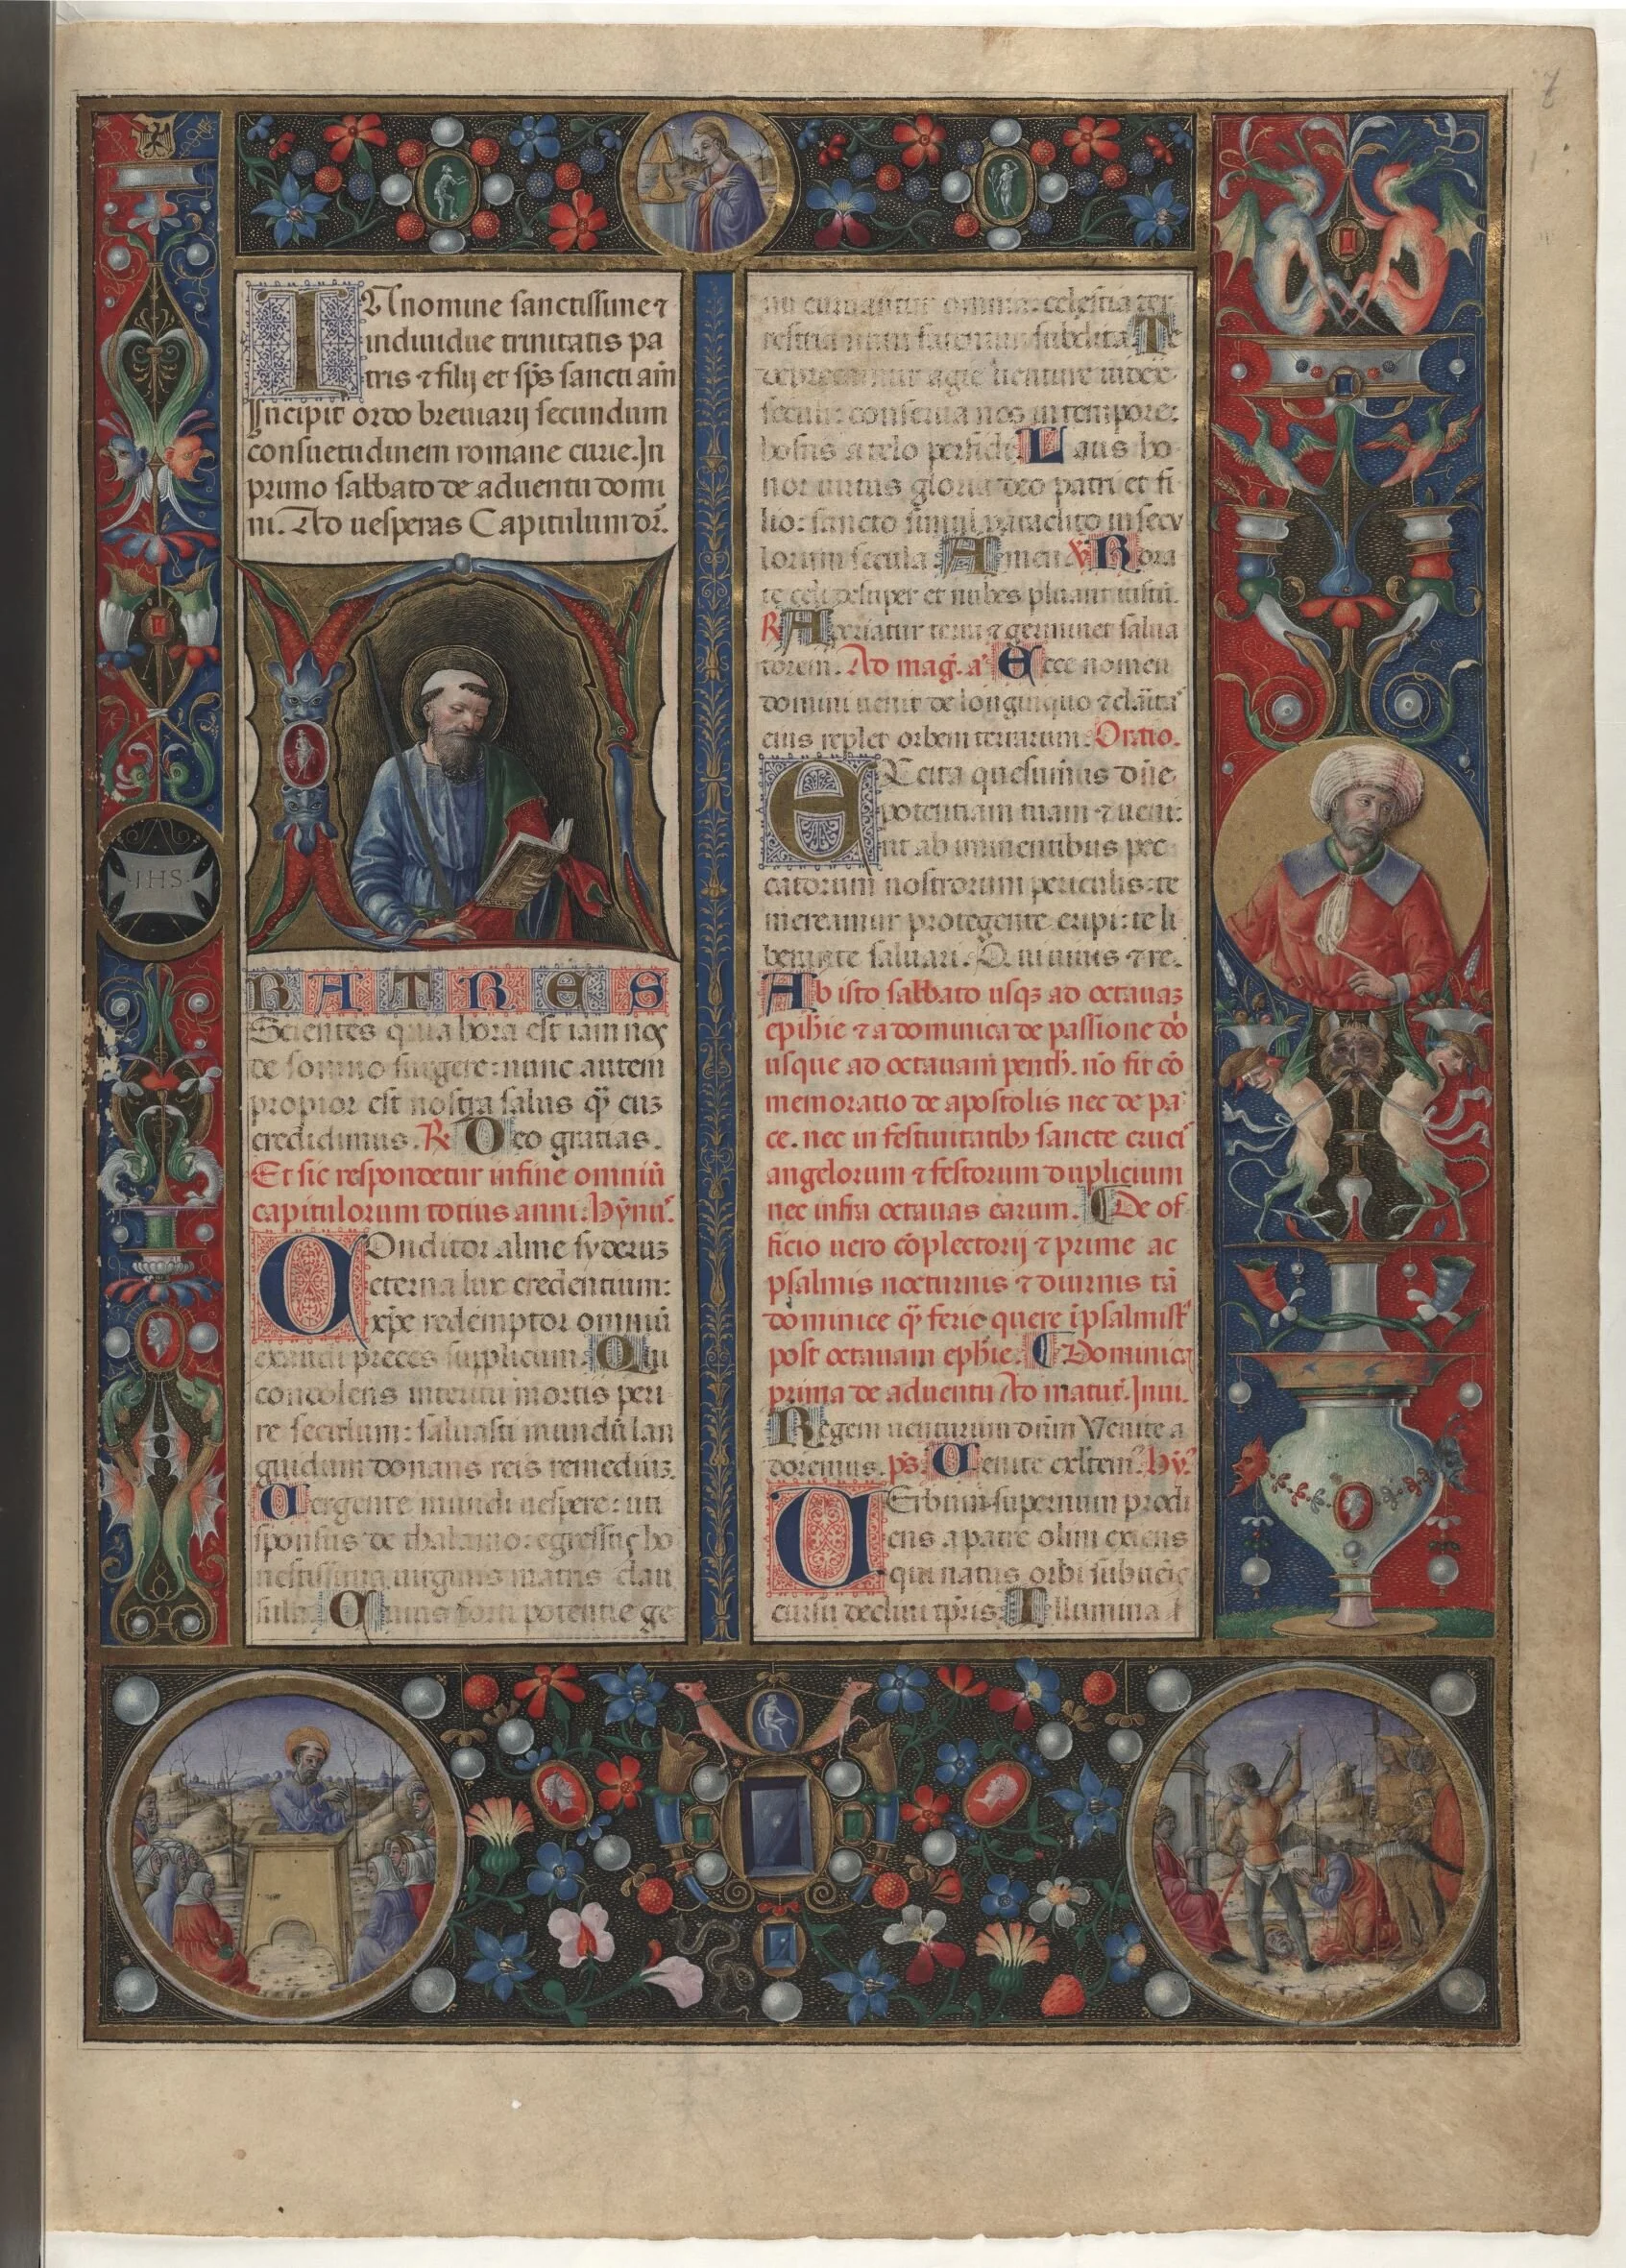 7
IHS
IN nomine sanctissime ⁊
indiuidue trinitatis pa
tris ⁊ filij et sp̄s sancti am̄
Incipit ordo breuiarij secundum
consuetudinem romane curie. In
primo sabbato de aduentu domi
ni. Ad uesperas Capitulum or̄.
FRATRES
Scientes quia hora est iam nos
de somno surgere: nunc autem
propior est nostra salus q̄ cuz
credidimus. ℟ Deo gratias.
Et sic respondetur in fine omniū
capitulorum totius anni. hȳnu᷒.
COnditor alme syderuz
eterna lux credentium:
xp̄e redemptor omniū
exaudi preces supplicum. Qui
condolens interitu mortis peri
re seculum: saluasti mundū lan
guidum donans reis remediuz.
Vergente mundi uespere: uti
sponsus de thalamo: egressus ho
nestissima uirginis matris clau
sula. Cuius forti potentie ge
nu curuantur omnia: celestia ter
restria nutu fatentur subdita. Te
deprecamur agie uenture iudex
seculi: conserua nos in tempore:
hostis a telo perfidi. Laus ho
nor uirtus gloria deo patri et fi
lio: sancto simul paraclito in secu
lorum secula. Amen. ℣ Rora
te celi desuper et nubes pluant iustū.
℟ Aperiatur terra ⁊ germinet salua
torem. Ad maḡ. a᷒ Ecce nomen
domini uenit de longinquo ⁊ claita᷒
eius replet orbem terrarum. Oratio.
EXcita quesumus dn̄e
potentiam tuam ⁊ ueni:
ut ab iminentibus pec
catorum nostrorum periculis: te
mereamur protegente eripi: te li
berante saluari. Qui uiuis ⁊ re.
Ab isto sabbato usqz ad octauaz
epih̄ie ⁊ a dominica de passione dō
usque ad octauam penth̄. nō fit cō
memoratio de apostolis nec de pa
ce. nec in festiuitatibz sancte cruci᷒
angelorum ⁊ festorum duplicium
nec infra octauas earum. ¶ De of
ficio uero cōplectorij ⁊ prime ac
psalmis nocturnis ⁊ diurnis tā
dominice q̄ ferie quere ī psalmist᷒
post octauam eph̄ie. ¶ Dominica
prima de aduentu Ad matut᷒. Inui.
Regem uenturum dn̄m Venite a
doremus. ps̄. Venite exltem᷒. hȳ᷒
VErbum supernum prodi
ens a patre olim exiens
qui natus orbi subuenis
cursu decliui tp̄ris. Illumina